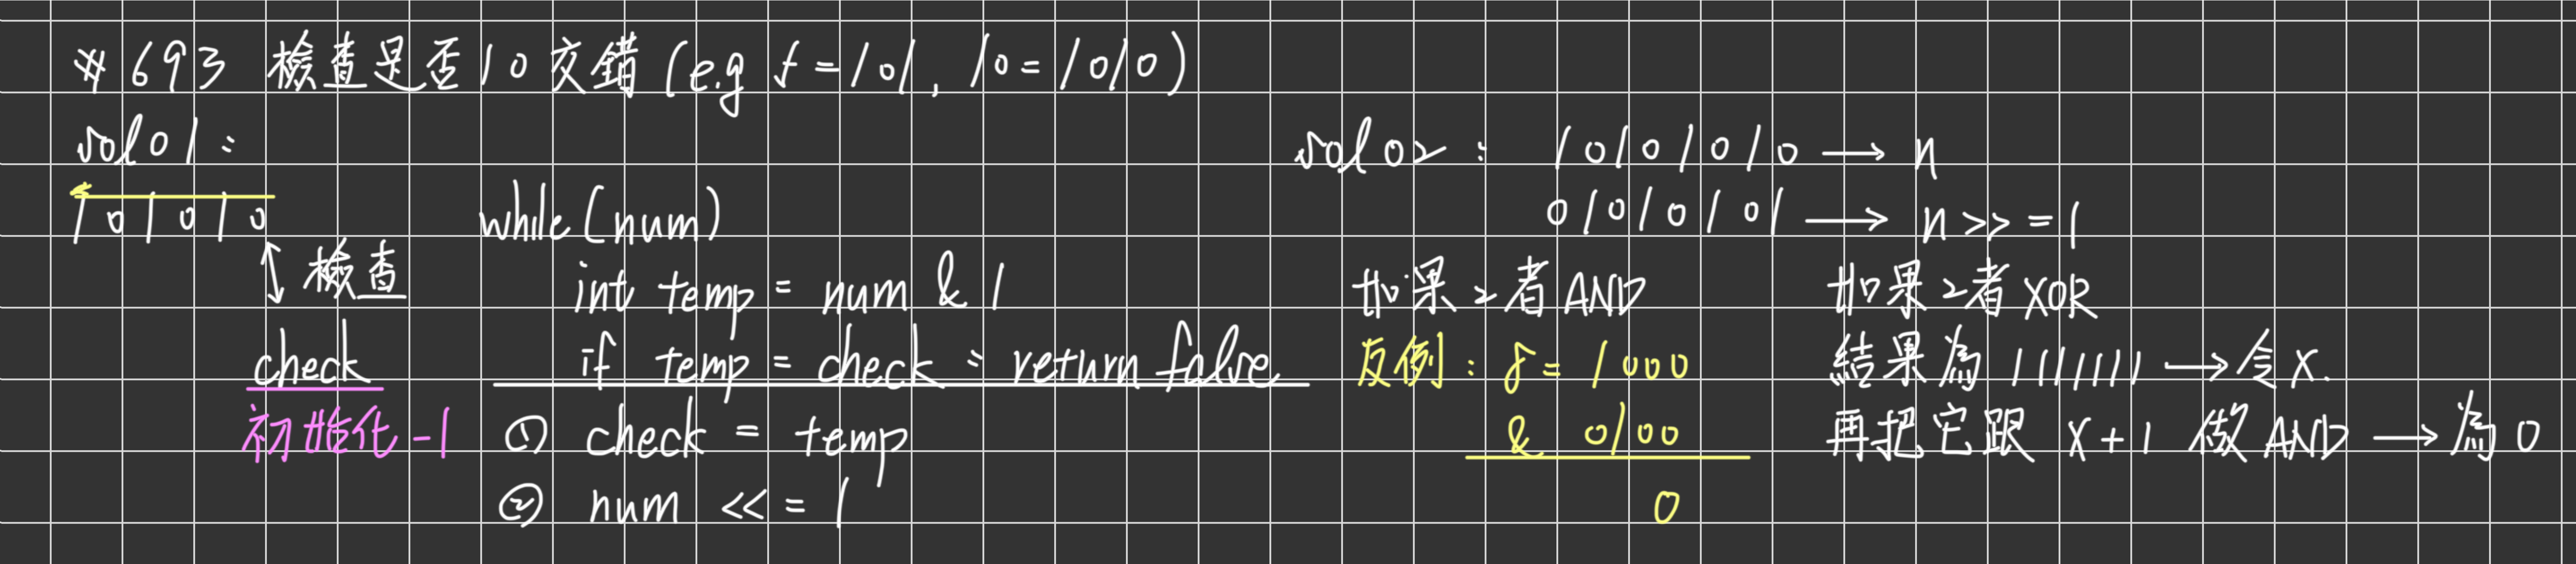 ※ 693 檢查是否10交錯 (e.g 5 = 101, 10 = 1010)
sol 01 :
101010
檢查
check
初始化 -1
while (num)
int temp = num & 1
if temp = check : return false
① check = temp
② num <<= 1
sol 02 : 10101010 → n
01010101 → n >>= 1
如果2者 AND
反例 : 8 = 1000
& 0100
0
如果2者 XOR
結果為 1111111 → 令 X.
再把它跟 X+1 做 AND → 為 0